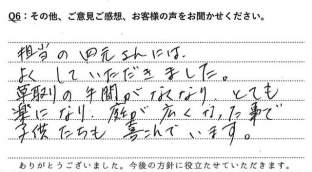 Q6：その他、ご意見ご感想、お客様の声をお聞かせください。
担当の四元さんには、
よくしていただきました。
草取りの手間がなくなり、とても
楽になり、庭が広くなった事で
子供たちも喜こんでいます。
ありがとうございました。今後の方針に役立たせていただきます。